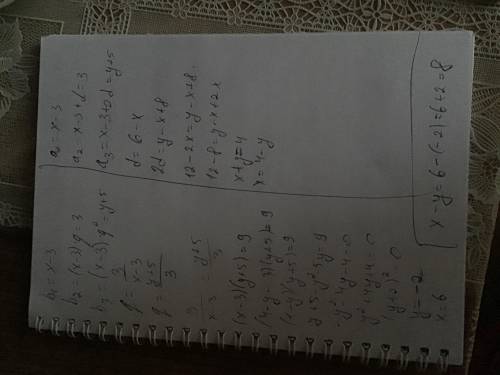 b₁ = x-3
b₂ = (x-3)q = 3
b₃ = (x-3)q² = y+5
q = 3/(x-3)
q = (y+5)/3
3/(x-3) (y+5)/3
(x-3)(y+5) = 9
(4-y-3)(y+5) = 9
(1-y)(y+5) = 9
y+5-y²-5y=9
-y²-4y-4=0
y²+4y+4=0
(y+2)²=0
y=-2
x=6
a₁ = x-3
a₂ = x-3+d=3
a₃ = x-3+2d=y+5
d = 6-x
2d = y-x+8
12-2x=y-x+8
12-8=y-x+2x
x+y=4
x=4-y
x-y=6-(-2)=6+2=8